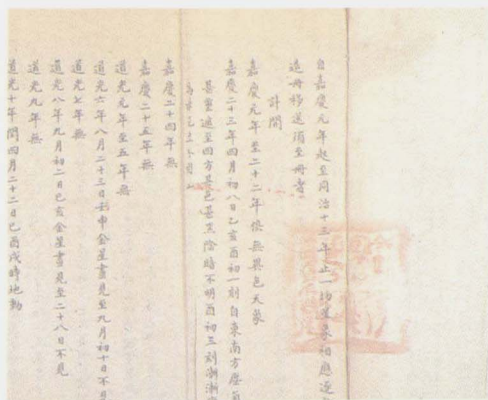 自嘉慶元年起至同治十三年止一切星象相應逐
造冊移送須至冊者
計開
嘉慶元年至二十二年俱無異色天象
嘉慶二十三年四月初八日乙亥酉初一刻自東南方塵氣
甚重遍至四方黃色甚至陰暗不明酉初三刻漸漸
嘉慶二十四年無
嘉慶二十五年無
道光元年至五年無
道光六年八月二十三日壬申金星晝見至九月初十日不見
道光七年無
道光八年九月初二日己亥金星晝見至二十八日不見
道光九年無
道光十年閏四月二十二日己酉戌時地動